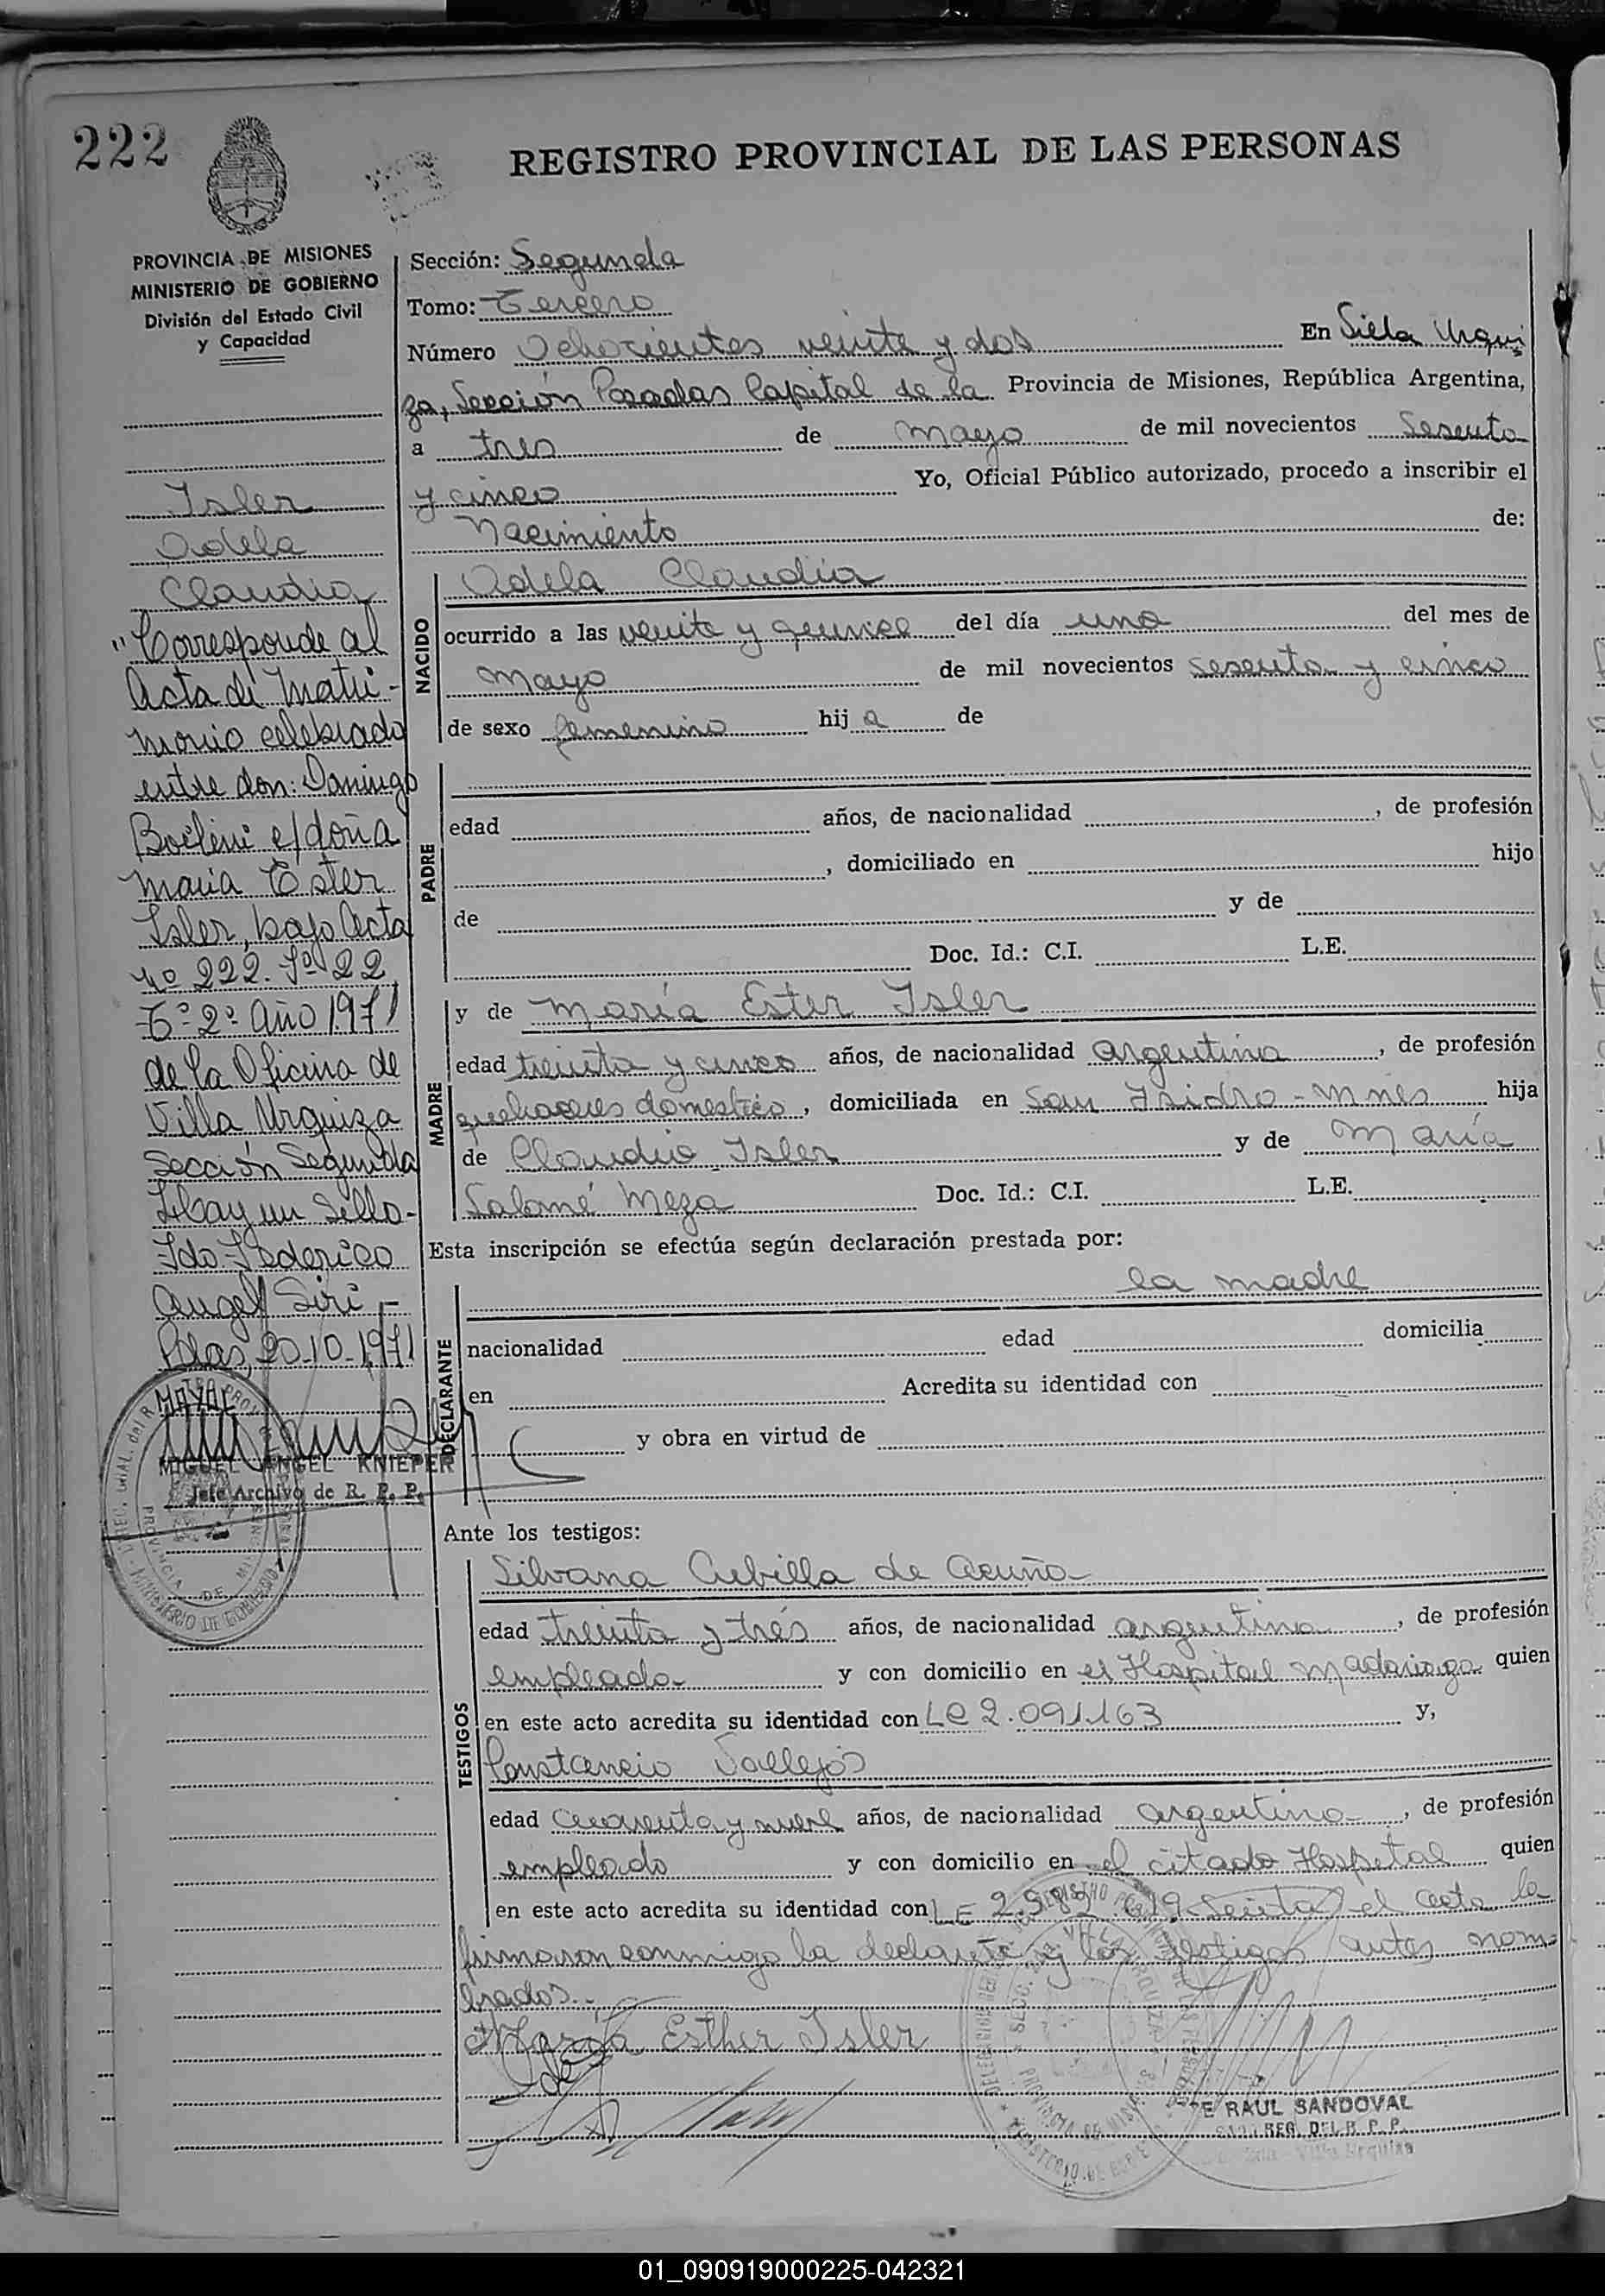 222
REGISTRO PROVINCIAL DE LAS PERSONAS
PROVINCIA DE MISIONES
MINISTERIO DE GOBIERNO
División del Estado Civil
y Capacidad
Isler
Adela
Claudia
"Corresponde al
Acta de Matri-
monio celebrado
entre don: Domingo
e/doña
Maria Ester
Isler, bajo Acta
nº 222. Fº 22
Tº 2º Año 1971
de la Oficina de
Villa Urquiza
Sección Segunda
Hay un Sello-
Fdo. Federico
Angel Siri -
Pdas, 20-10-1971
MIGUEL ANGEL KNIEPER
Jefe Archivo de R. P. P.
Sección: Segunda
Tomo: Tercero
Número Ochocientos veinte y dos En Villa Urqui
za, Sección Posadas Capital de la Provincia de Misiones, República Argentina,
a tres de mayo de mil novecientos sesenta
y cinco Yo, Oficial Público autorizado, procedo a inscribir el
Nacimiento de:
NACIDO
Adela Claudia
ocurrido a las veinte y quince del día uno del mes de
mayo de mil novecientos sesenta y cinco
de sexo femenino hij a de
PADRE
edad años, de nacionalidad , de profesión
, domiciliado en hijo
de y de
Doc. Id.: C.I. L.E.
MADRE
y de María Ester Isler
edad treinta y cinco años, de nacionalidad argentina , de profesión
quehaceres domestico , domiciliada en San Isidro - Mnes hija
de Claudio Isler y de María
Salomé Meza Doc. Id.: C.I. L.E.
Esta inscripción se efectúa según declaración prestada por:
DECLARANTE
la madre
nacionalidad edad domicilia
en Acredita su identidad con
y obra en virtud de
Ante los testigos:
TESTIGOS
Silvana Cubilla de Acuña
edad treinta y trés años, de nacionalidad argentina , de profesión
empleada y con domicilio en el Hospital Madariaga quien
en este acto acredita su identidad con LC 2.091.163 y,
Constancio Vallejos
edad cuarenta y nueve años, de nacionalidad argentino , de profesión
empleado y con domicilio en el citado Hospital quien
en este acto acredita su identidad con LE el acta la
firmaron conmigo la declarante y los testigos antes nom-
brados.-
María Esther Isler
RAUL SANDOVAL
REG. DEL R. P. P.
Villa Urquiza
01_090919000225-042321